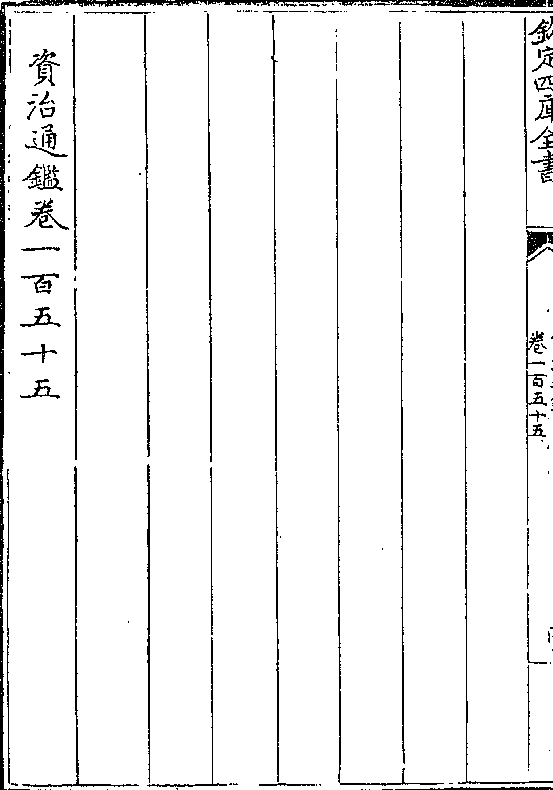 欽定四庫全書
卷一百五十五
資治通鑑卷一百五十五